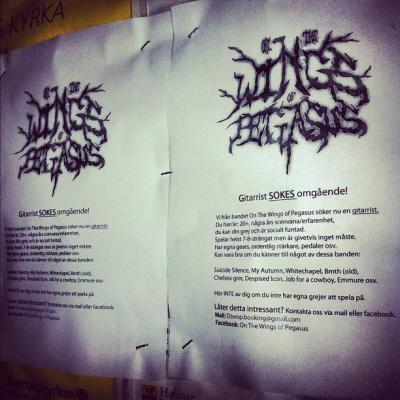 KYRKA
ON THE
WINGS
OF
PEGASUS
Gitarrist SÖKES omgående!
Vi från bandet On The Wings of Pegasus söker nu en gitarrist.
Du har/är: 20+, några års scenvana/erfarenhet,
du kan din grej och är socialt funtad.
Spelar helst 7-8-strängat men är givetvis inget måste.
Har egna gears, ordentlig stärkare, pedaler osv.
Kan vara bra om du känner till något av dessa banden:
Suicide Silence, My Autumn, Whitechapel, Bmth (old),
Chelsea grin, Despised Icon, Job for a cowboy, Emmure osv.
Hör INTE av dig om du inte har egna grejer att spela på.
Låter detta intressant? Kontakta oss via mail eller facebook.
Mail:
Facebook: On The Wings of Pegasus
ON THE
WINGS
OF
PEGASUS
Gitarrist SÖKES omgående!
Vi från bandet On The Wings of Pegasus söker nu en gitarrist.
Du har/är: 20+, några års scenvana/erfarenhet,
du kan din grej och är socialt funtad.
Spelar helst 7-8-strängat men är givetvis inget måste.
Har egna gears, ordentlig stärkare, pedaler osv.
Kan vara bra om du känner till något av dessa banden:
Suicide Silence, My Autumn, Whitechapel, Bmth (old),
Chelsea grin, Despised Icon, Job for a cowboy, Emmure osv.
Hör INTE av dig om du inte har egna grejer att spela på.
Låter detta intressant? Kontakta oss via mail eller facebook.
Mail: Otwop.booking@gmail.com
Facebook: On The Wings of Pegasus